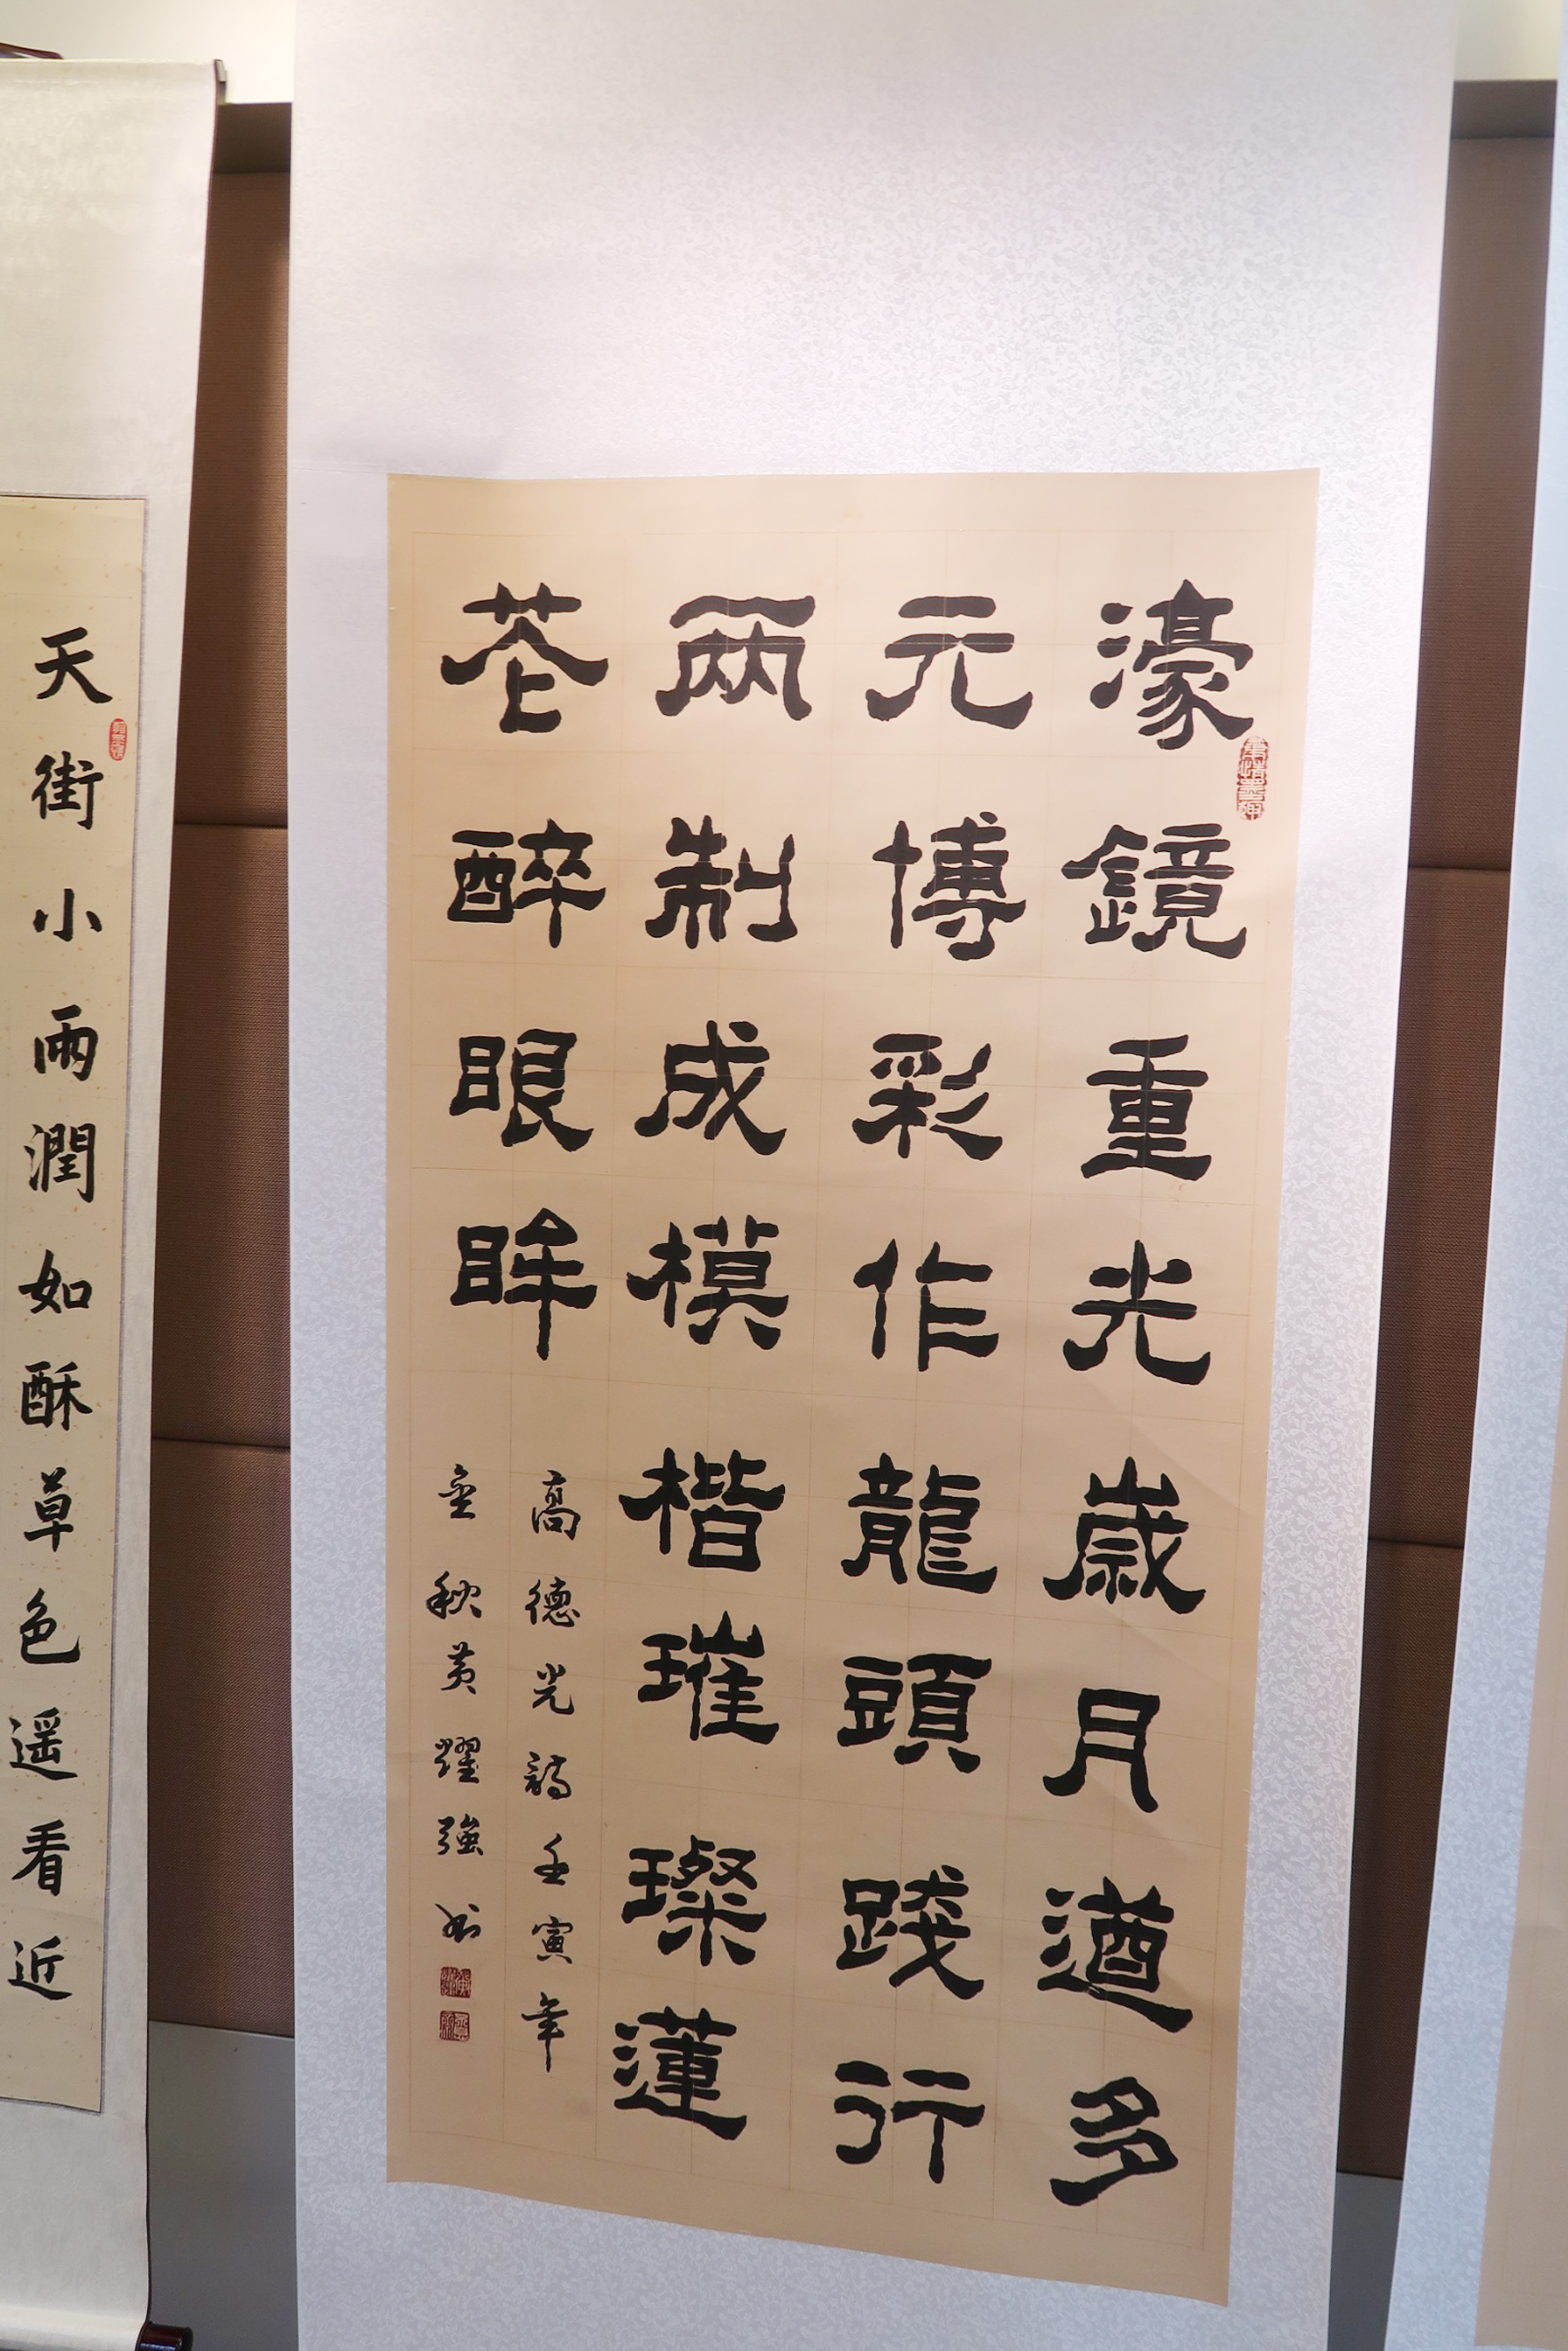 濠鏡重光歲月遒多
元博彩作龍頭踐行
兩制成模楷璀璨蓮
花醉眼眸
高德光詩壬寅年
金秋黃耀強書
天街小雨潤如酥草色遥看近